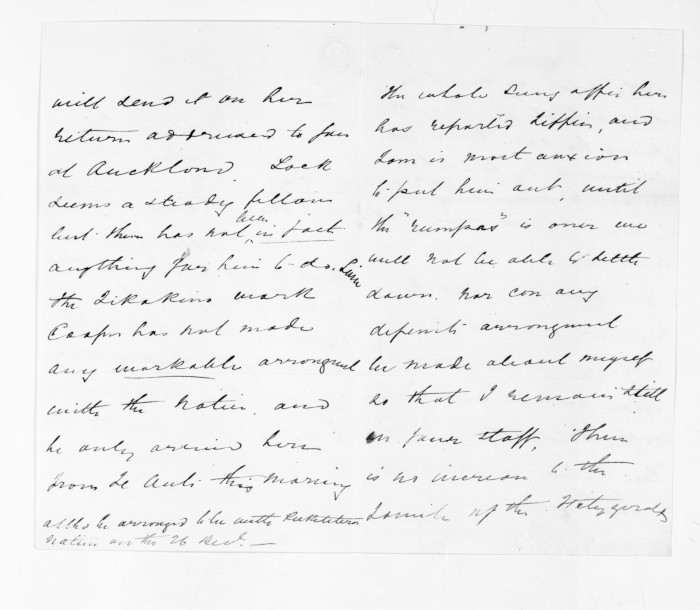 will send it on her
return addressed to you
at Auckland. Lock
seems a steady fellow
but there has not been in fact
anything for him to do. Since
the Tikakino work
Cooper has not made
any workable arrangement
with the Natives, and
he only arrived here
from Te Aute this morning
altho he arranged to be with
Natives on the 26 Decr. —
The whole Survey affair here
has reported Tiffin, and
Tom is most anxious
to put him out, until
the "rumpus" is over we
will not be able to settle
down. nor can any
definite arrangement
be made about myself
so that I remain still
on your staff. There
is no increase to the
Family of the Fitzgeralds